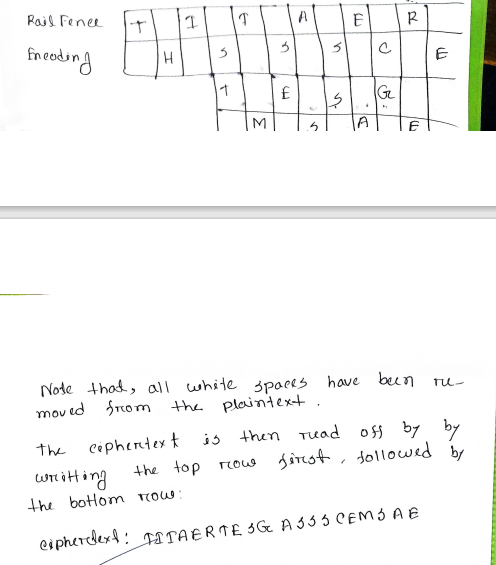 Rail Fence T I T A E R
Encoding H S S S C E
T E S G
M S A E
Note that, all white spaces have been re-
moved from the plaintext.
the ciphertext is then read off by by
writting the top row first, followed by
the bottom row:
ciphertext: TITAERTESG ASSSCEMSAE